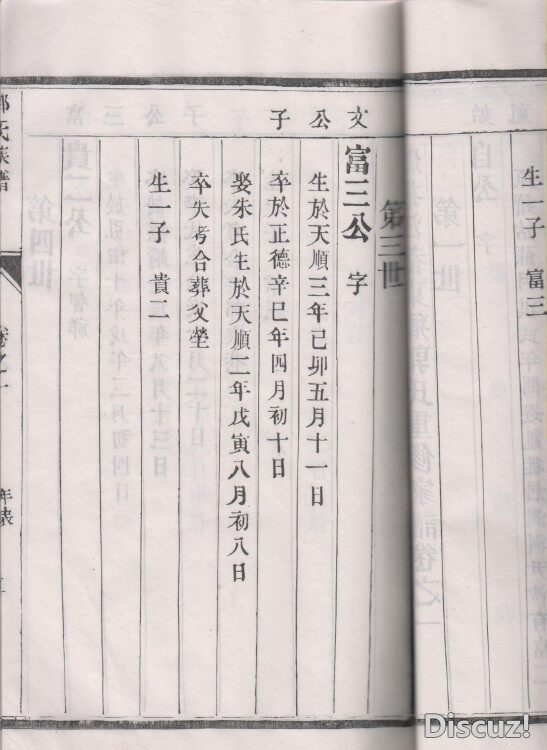 生一子富三
第三世
文公子
富三公字
生於天順三年己卯五月十一日
卒於正德辛巳年四月初十日
娶朱氏生於天順二年戊寅八月初八日
卒失考合葬父塋
生一子貴二
氏族譜
卷之
年表
Discuz!